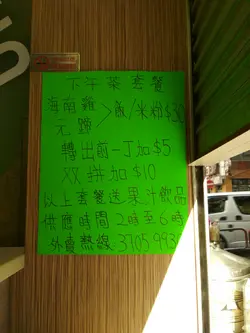 下午茶套餐
海南雞 > 飯/米粉$30
元蹄
轉出前一丁加$5
双拼加$10
以上套餐送果汁飲品
供應時間2時至6時
外賣熱線37059932